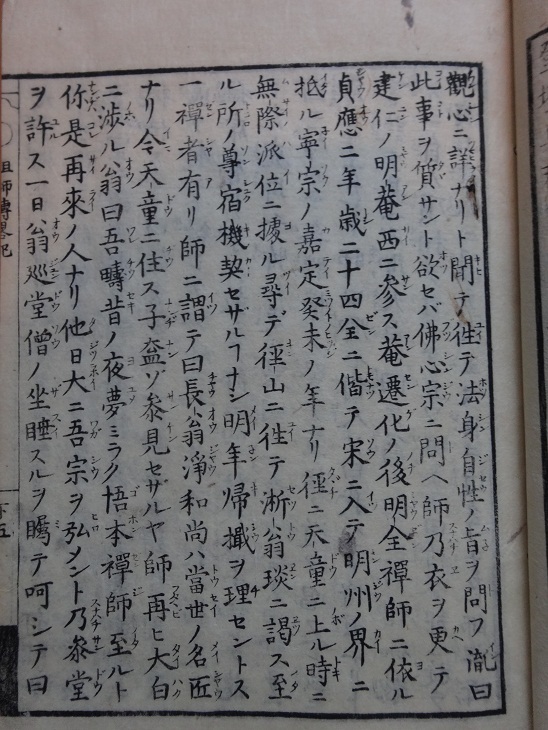 觀心ニ詳ナリト聞テ徃テ法身自性ノ旨ヲ問フ胤曰
此事ヲ質サント欲セバ佛心宗ニ問ヘ師乃衣ヲ更テ
建仁ノ明菴西ニ參ス菴遷化ノ後明全禪師ニ依ル
貞應二年歳二十四全ニ偕テ宋ニ入テ明州ノ界ニ
抵ル寧宗ノ嘉定癸未ノ年ナリ徑ニ天童ニ上ル時ニ
無際派位ニ據ル尋デ徑山ニ徃テ淅翁琰ニ謁ス至
ル所ノ尊宿機契セザルヿナシ明年歸擑ヲ理セントス
一禪者有リ師ニ謂テ曰長翁淨和尚ハ當世ノ名匠
ナリ今天童ニ住ス子盍ゾ參見セザルヤ師再ヒ大白
ニ渉ル翁曰吾疇昔ノ夜夢ミラク悟本禪師至ルト
你是再來ノ人ナリ他日大ニ吾宗ヲ弘メント乃參堂
ヲ許ス一日翁巡堂僧ノ坐睡スルヲ矚テ呵シテ曰
祖師傳畧記
下五